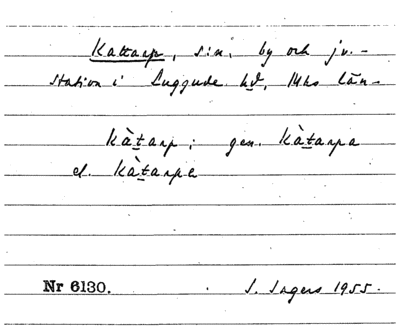 Kattarp, s:n, by och jv.-
station i Luggude hd, Mhs län-
Kàt̲arp; gen. Kàt̲arpa
el. Kàt̲arpe
Nr 6130. S. Ingers 1955.